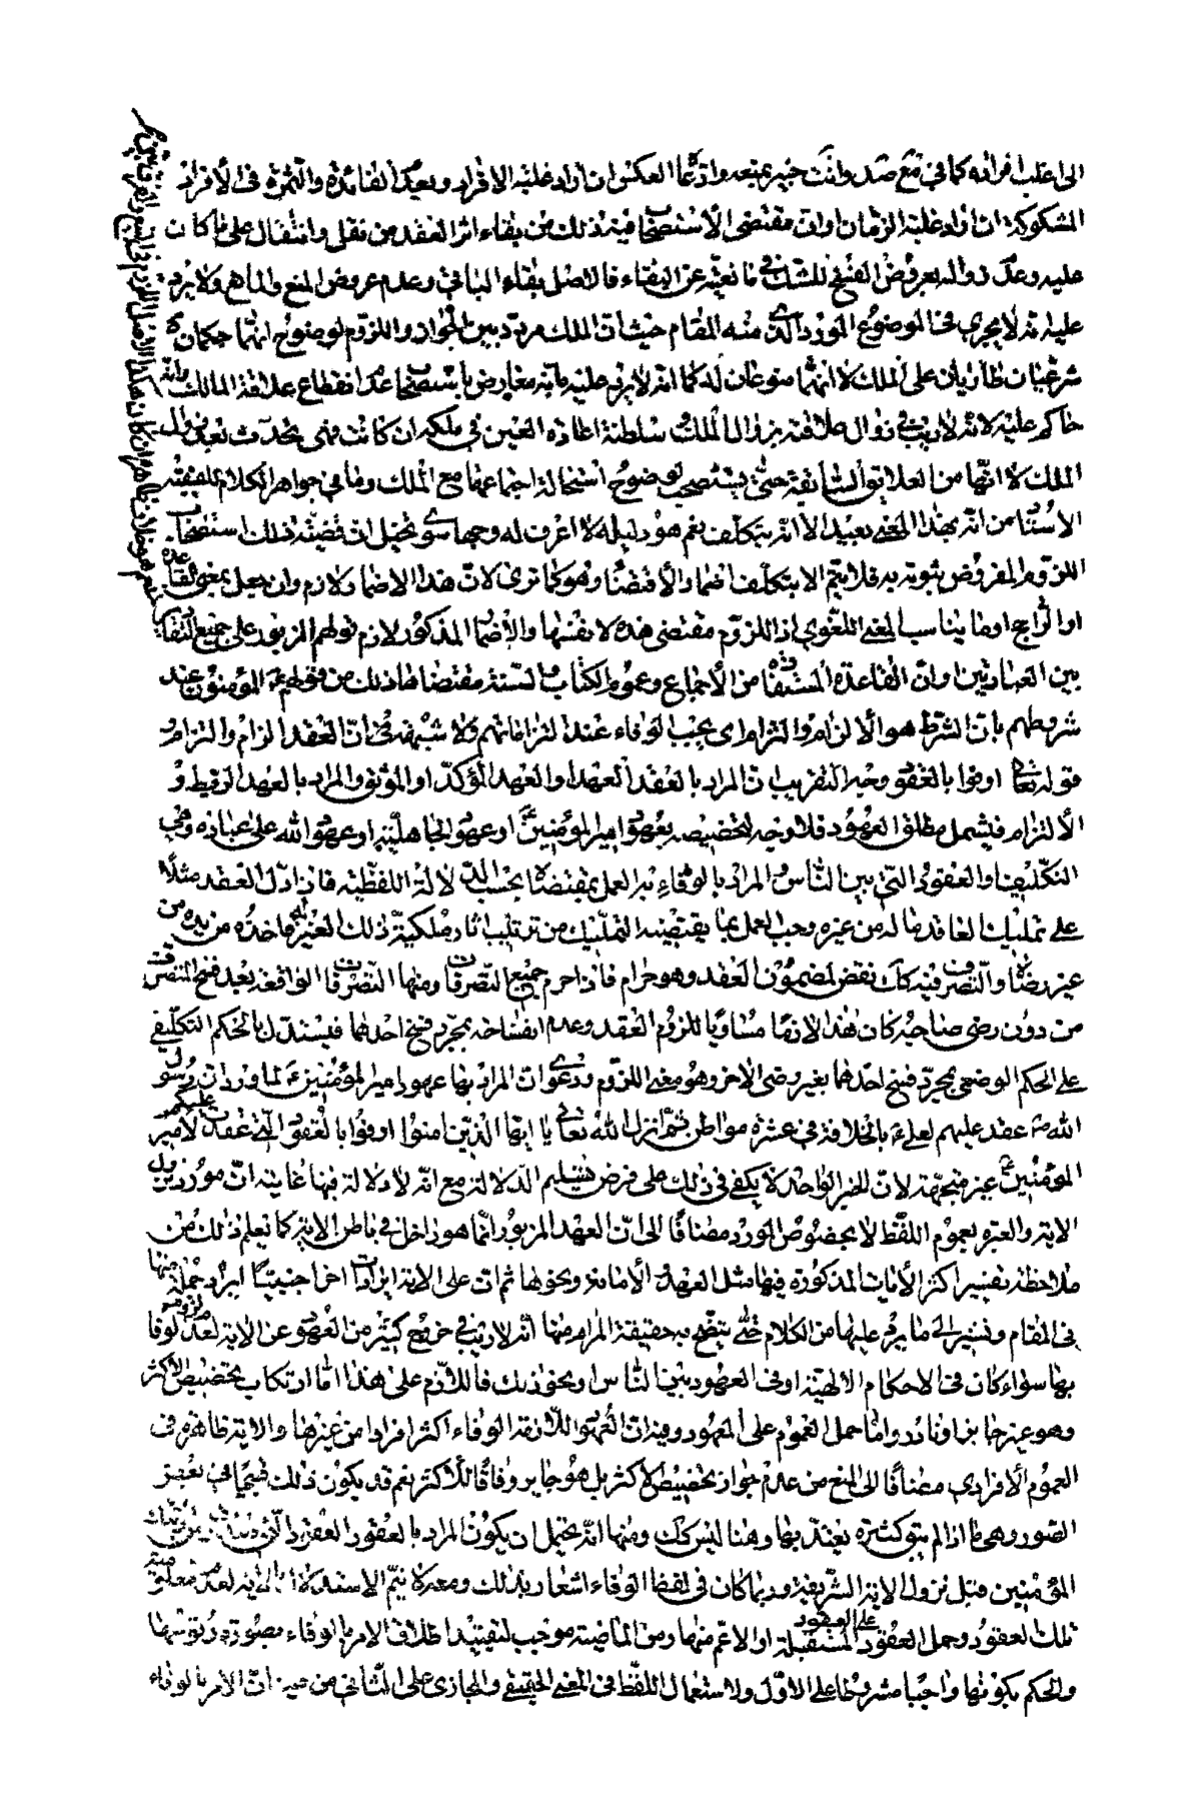 الى اغلب افراده كما فى وانت خبير بمنعه واما العكس ان اراد غلبة الافراد وبعد الفائدة والثمرة فى الأفراد
المشكوكة ان اراد غلبة الزمان وان مقتضى الأستصحاب فيه ذلك من بقاء اثر العقد من نقل وانتقال على ما كان
عليه وعدم زواله بعروض الفسخ للشك فى مانعيته عن البقاء فالاصل بقاء الباقى وعدم عروض المنع والمانع ولا يرد
عليه انه لا يجرى فى الموضوع المردد الذى منه المقام حيث ان الملك مردد بين الجواز واللزوم لوضوح انهما حكمان
شرعيان طاريان على الملك لا انهما منوعان له كما انه لا يرد عليه بانه معارض باستصحاب عدم انقطاع علاقة المالك لانه
حاكم عليه لانه لا ريب فى زوال علاقته بزوال الملك و سلطنة اعادة العين فى ملكه ان كانت فهى يحدث بعد زوال
الملك لا انها من العلايق السابقة حتى يستصحب لوضوح استحالة اجتماعها مع الملك وما فى جواهر الكلام لفقيه
الاستاد من انه بهذا المعنى بعيد الا انه بتكلف نعم هو دليله لا اعرف له وجها سوى تخيل ان قضيته ذلك استصحاب
اللزوم المفروض ثبوته به فلا يتم الا بتكلف وهو كما ترى لان هذا لازم وان جعل بمعنى القاعدة
او الراجح او ما يناسب المعنى اللغوى اذ اللزوم مقتضى هذه لا نفسها المذكور لازم قولهم المزبور على جميع التقادير
بين العبارتين وان القاعدة المستفادة من الأجماع وعموم الكتاب والسنة مقتضاها ذلك من قولهم المؤمنون عند
شروطهم بان الشرط هو الألزام والتزام اى يجب الوفاء عند التزاماتهم ولا شبهة فى ان العقد الزام والتزام
قوله تعالى اوفوا بالعقود وجه التقريب ان المراد بالعقد العهد او العهد المؤكد او الموثق والمراد بالعهد
الألتزام فيشمل مطلق العهود فلا وجه لتخصيصه بعهود امير المؤمنين او عهود الجاهلية او عهود الله على عباده وهى
التكليف والعقود التى بين الناس والمراد بالوفاء به العمل بمقتضاه بحسب الدلالة اللفظية فاذا دل العقد مثلا
على تمليك العاقد ماله من غيره وجب العمل بما يقتضيه التمليك من ترتيب اثار ملكية ذلك الغير له فاخذه من يده من
غير رضاه والتصرف فيه كك نقض لمضمون العقد وهو حرام فاذا حرم جميع التصرفات ومنها التصرفات الواقعة بعد فسخ المتصرف
من دون رضى صاحبه كان هذا لازما مساويا للزوم العقد وعدم انفساخه بمجرد فسخ احدهما فيستدل بالحكم التكليفى
على الحكم الوضعى بمجرد فسخ احدهما بغير رضى الاخر وهو معنى اللزوم ودعوى ان المراد بها عهود امير المؤمنين ع لما ورد ان رسول
الله ص عقد عليهم لعلى ع بالخلافة فى عشرة مواطن ثم انزل الله تعالى يا ايها الذين امنوا اوفوا بالعقود التى عقدت عليكم لامير
المؤمنين ع غير متجهة لان الخبر الواحد لا يكفى فى ذلك على فرض تسليم الدلالة مع انه لا دلالة فيها غايته ان مورد نزول
الاية والعبرة بعموم اللفظ لا بخصوص المورد مضافا الى ان العهد المزبور انما هو داخل فى باطن الاية كما يعلم ذلك من
ملاحظة تفسير اكثر الأيات المذكورة فيها مثل العهد و الأمانة ونحوها ثم ان على الاية ايرادات اخر احببنا ايراد جملة منها
فى المقام ونشير الى ما يرد عليها من الكلام حتى يتضح به حقيقة المرام منها انه لا ريب فى خروج كثير من العهود عن الاية لعدم لزوم الوفا
بها سواء كان فى الاحكام الالهية او فى العهود بين الناس او نحو ذلك فاللازم على هذا اما ارتكاب تخصيص الاكثر
وهو غير جايز او نادر واما حمل العموم على المعهود وفيه ان العهود اللازمة الوفاء اكثر افرادا من غيرها والاية ظاهرة فى
العموم الأفرادى مضافا الى المنع من عدم جواز تخصيص الاكثر بل هو جايز وفاقا للاكثر نعم قد يكون ذلك قبيحا فى بعض
الصور وهى ما اذا لم يبق كثرة يعتد بها وهنا ليس كك ومنها انه يحتمل ان يكون المراد بالعقود العقود التى
المؤمنين قبل نزول الاية الشريفة وربما كان فى لفظ الوفاء اشعار بذلك ومعه لا يتم الاستدلال بالاية لعدم معلومية
تلك العقود وحمل العقود على العقود المستقبلة او الاعم منها ومن الماضية موجب لتقييد اطلاق الامر بالوفاء بصورة وقوعها
والحكم بكونها واجبا مشروطا على الاول ولاستعمال اللفظ فى المعنى الحقيقى والمجازى على الثانى من حيث ان الامر بالوفاء